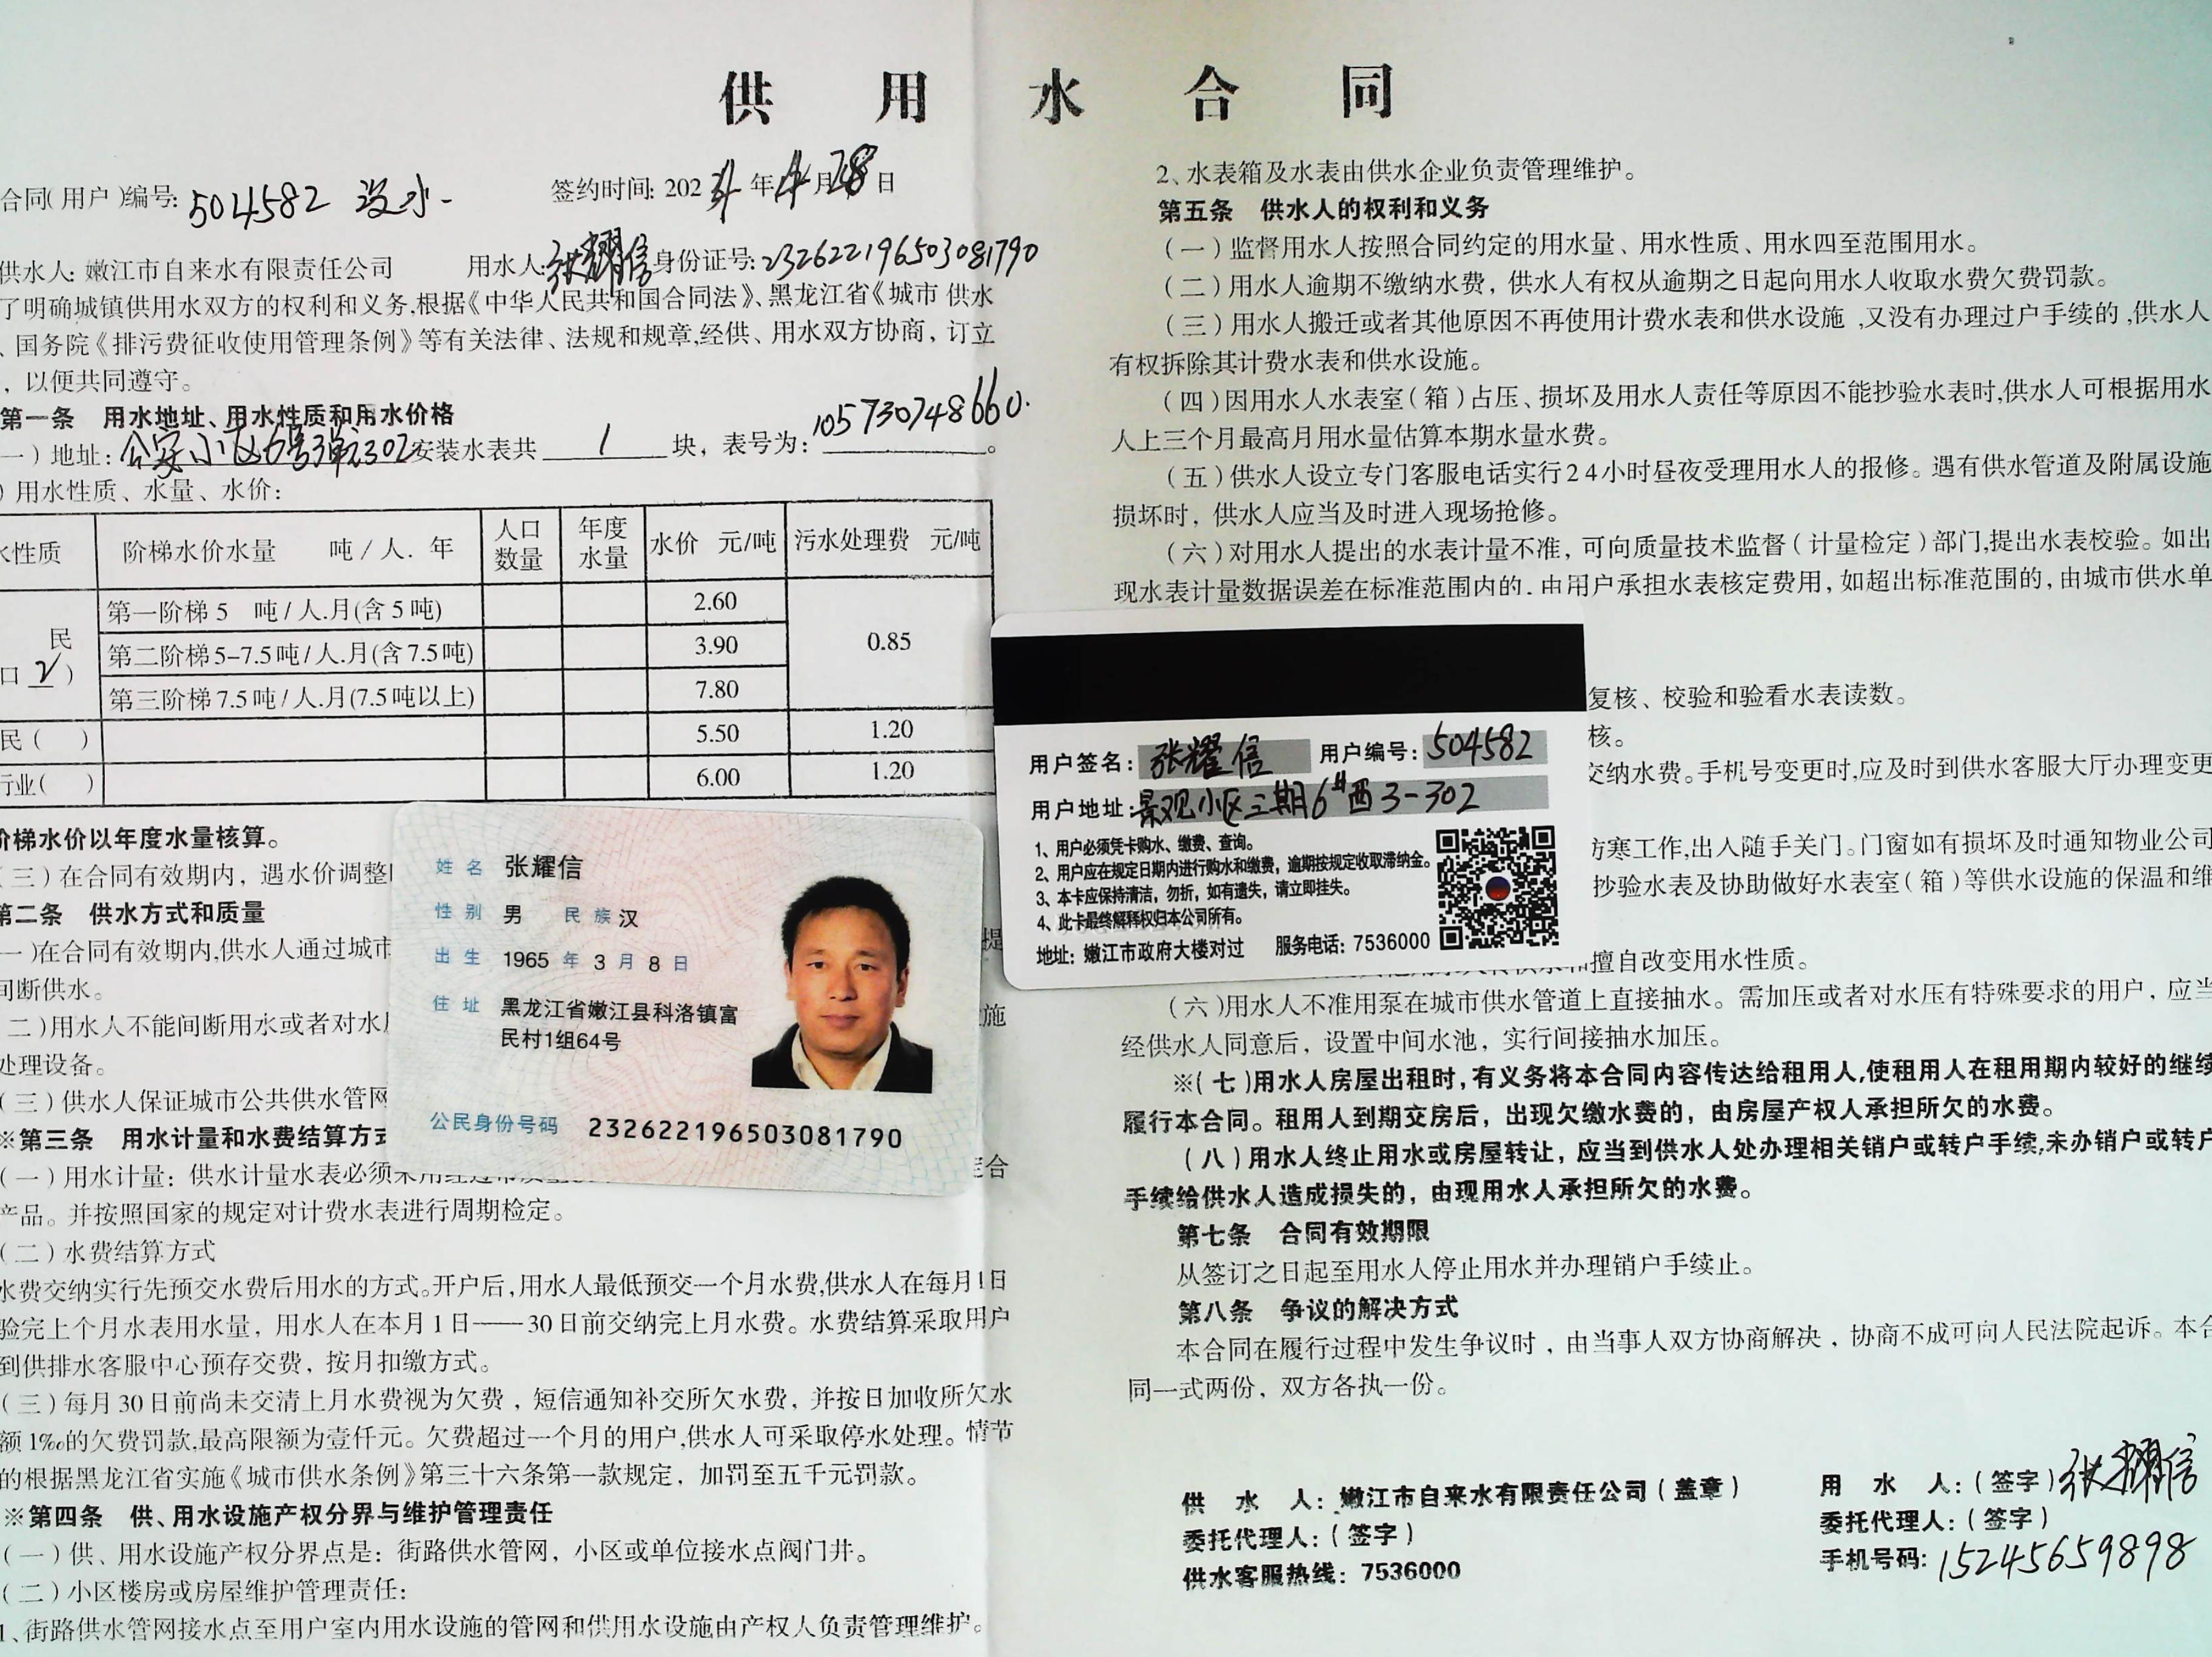 供用水合同
合同(用户)编号:504582 没水.
签约时间:202 年4月28日
供水人:嫩江市自来水有限责任公司 用水人:张耀信身份证号:232622196503081790
了明确城镇供用水双方的权利和义务,根据《中华人民共和国合同法》、黑龙江省《城市 供水
、国务院《排污费征收使用管理条例》等有关法律、法规和规章,经供、用水双方协商,订立
,以便共同遵守。
第一条 用水地址、用水性质和用水价格
一)地址:公安小区6号3单元302安装水表共 1 块,表号为:105730748660.
)用水性质、水量、水价:
水性质 阶梯水价水量 吨/人.年 人口数量 年度水量 水价 元/吨 污水处理费 元/吨
民 第一阶梯 5 吨/人.月(含5吨) 2.60
口 2 ) 第二阶梯5-7.5吨/人.月(含7.5吨) 3.90 0.85
第三阶梯7.5吨/人.月(7.5吨以上) 7.80
民( ) 5.50 1.20
行业( ) 6.00 1.20
阶梯水价以年度水量核算。
(三)在合同有效期内,遇水价调整
第二条 供水方式和质量
一)在合同有效期内,供水人通过城市
提
间断供水。
二)用水人不能间断用水或者对水
施
处理设备。
(三)供水人保证城市公共供水管网
※第三条 用水计量和水费结算方式
(一)用水计量:供水计量水表必须采用经过
合
产品。并按照国家的规定对计费水表进行周期检定。
(二)水费结算方式
水费交纳实行先预交水费后用水的方式。开户后,用水人最低预交一个月水费,供水人在每月1日
验完上个月水表用水量,用水人在本月1日——30日前交纳完上月水费。水费结算采取用户
到供排水客服中心预存交费,按月扣缴方式。
(三)每月30日前尚未交清上月水费视为欠费,短信通知补交所欠水费,并按日加收所欠水
额1‰的欠费罚款,最高限额为壹仟元。欠费超过一个月的用户,供水人可采取停水处理。情节
的根据黑龙江省实施《城市供水条例》第三十六条第一款规定,加罚至五千元罚款。
※第四条 供、用水设施产权分界与维护管理责任
(一)供、用水设施产权分界点是:街路供水管网,小区或单位接水点阀门井。
(二)小区楼房或房屋维护管理责任:
1、街路供水管网接水点至用户室内用水设施的管网和供用水设施由产权人负责管理维护。
姓名 张耀信
性别 男 民族 汉
出生 1965 年 3 月 8 日
住址 黑龙江省嫩江县科洛镇富
民村1组64号
公民身份号码 232622196503081790
2、水表箱及水表由供水企业负责管理维护。
第五条 供水人的权利和义务
(一)监督用水人按照合同约定的用水量、用水性质、用水四至范围用水。
(二)用水人逾期不缴纳水费,供水人有权从逾期之日起向用水人收取水费欠费罚款。
(三)用水人搬迁或者其他原因不再使用计费水表和供水设施,又没有办理过户手续的,供水人
有权拆除其计费水表和供水设施。
(四)因用水人水表室(箱)占压、损坏及用水人责任等原因不能抄验水表时,供水人可根据用水
人上三个月最高月用水量估算本期水量水费。
(五)供水人设立专门客服电话实行24小时昼夜受理用水人的报修。遇有供水管道及附属设施
损坏时,供水人应当及时进入现场抢修。
(六)对用水人提出的水表计量不准,可向质量技术监督(计量检定)部门,提出水表校验。如出
现水表计量数据误差在标准范围内的,由用户承担水表核定费用,如超出标准范围的,由城市供水单
用户签名:张耀信 用户编号:504582
用户地址:景观小区三期6#西3-302
1、用户必须凭卡购水、缴费、查询。
2、用户应在规定日期内进行购水和缴费,逾期按规定收取滞纳金。
3、本卡应保持清洁,勿折,如有遗失,请立即挂失。
4、此卡最终解释权归本公司所有。
地址:嫩江市政府大楼对过 服务电话:7536000
复核、校验和验看水表读数。
核。
交纳水费。手机号变更时,应及时到供水客服大厅办理变更
防寒工作,出入随手关门。门窗如有损坏及时通知物业公司
抄验水表及协助做好水表室(箱)等供水设施的保温和维
擅自改变用水性质。
(六)用水人不准用泵在城市供水管道上直接抽水。需加压或者对水压有特殊要求的用户,应当
经供水人同意后,设置中间水池,实行间接抽水加压。
※(七)用水人房屋出租时,有义务将本合同内容传达给租用人,使租用人在租用期内较好的继续
履行本合同。租用人到期交房后,出现欠缴水费的,由房屋产权人承担所欠的水费。
(八)用水人终止用水或房屋转让,应当到供水人处办理相关销户或转户手续,未办销户或转户
手续给供水人造成损失的,由现用水人承担所欠的水费。
第七条 合同有效期限
从签订之日起至用水人停止用水并办理销户手续止。
第八条 争议的解决方式
本合同在履行过程中发生争议时,由当事人双方协商解决,协商不成可向人民法院起诉。本合
同一式两份,双方各执一份。
供 水 人:嫩江市自来水有限责任公司(盖章)
委托代理人:(签字)
供水客服热线:7536000
用 水 人:(签字)张耀信
委托代理人:(签字)
手机号码:15245659898